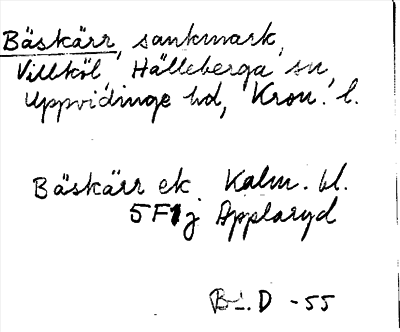 Bäskärr, sankmark,
Villköl, Hälleberga sn,
Uppvidinge hd, Kron. l.
Bäskärr ek. Kalm. bl.
5F1j Applaryd
D -55